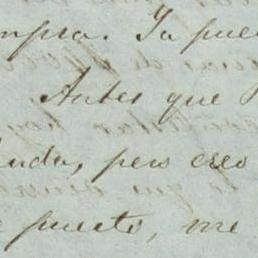 mpra. Ya pue
Antes que
duda, pero creo
puerto, me